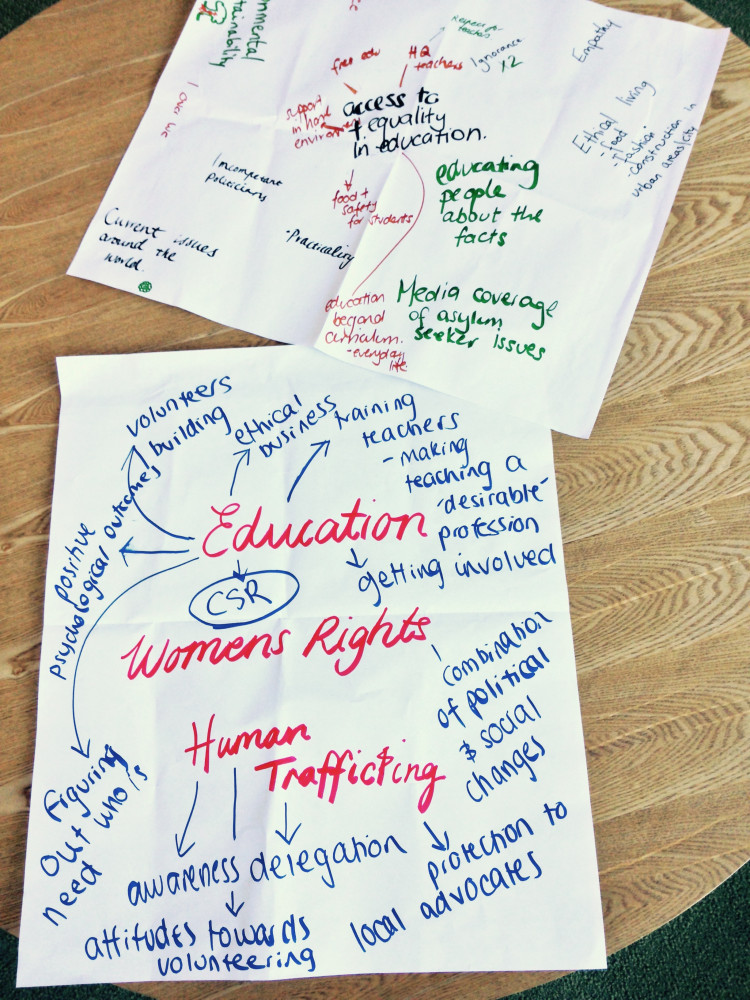 sustainability
free edu
HQ
teachers
Ignorance
x2
Empathy
support
in home
environment
access to
+ equality
in education.
Ethical living
- food
- fashion
- construction in
urban areas/city
Incompetent
politicians
food +
safety
for students
educating
people
about the
facts
Current issues
around the
world.
- Practicality
education
beyond
curriculum.
- everyday
life.
Media coverage
of asylum
seeker issues
volunteers
building
ethical
business
training
teachers
- making
teaching a
"desirable"
profession
positive
psychological outcomes
Education
getting involved
CSR
Womens Rights
combination
of political
& social
changes
Human
Trafficking
Figuring
out who is
need
awareness
delegation
protection to
local advocates
attitudes towards
volunteering